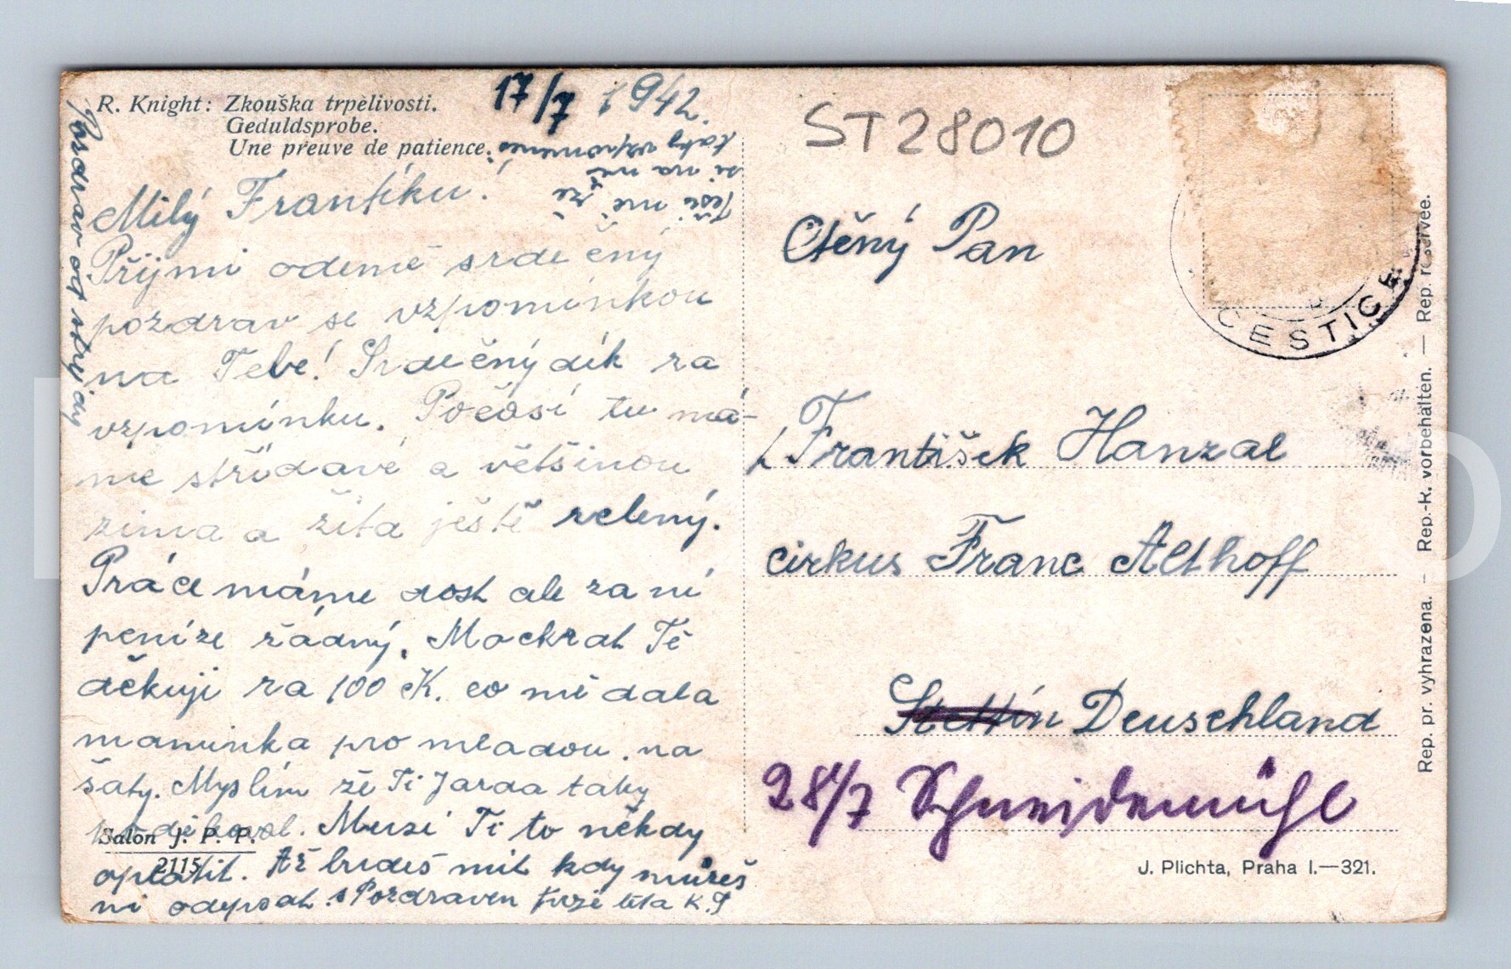 R. Knight: Zkouška trpělivosti.
Geduldsprobe.
Une preuve de patience.
17/7 1942.
ST28010
Těší mě že
si na mě
taky vzpomeneš
Milý Frantíku!
Přijmi odemě srdečný
pozdrav se vzpomínkou
na Tebe! Srdečný dík za
vzpomínku. Počasí tu má-
me střídavé a většinou
zima a žita ještě zelený.
Práce máme dost ale za ní
peníze žádný. Mockrat Tě
děkuji za 100 K. co mě dala
maminka pro mladou na
šaty. Myslím že Ti Jarda taky
Musí Ti to někdy
oplatit. Až budeš mit kdy můžeš
mi odepsat. S Pozdravem teta K.
Pozdrav od strýdy
Salon J. P. P.
2115
Ctěný Pan
František Hanzal
cirkus Franc Althoff
Stettin Deuschland
28/7 Schneidemühl
CESTICE
J. Plichta, Praha I.—321.
Rep. pr. vyhrazena. — Rep.-R. vorbehalten. — Rep. reservée.